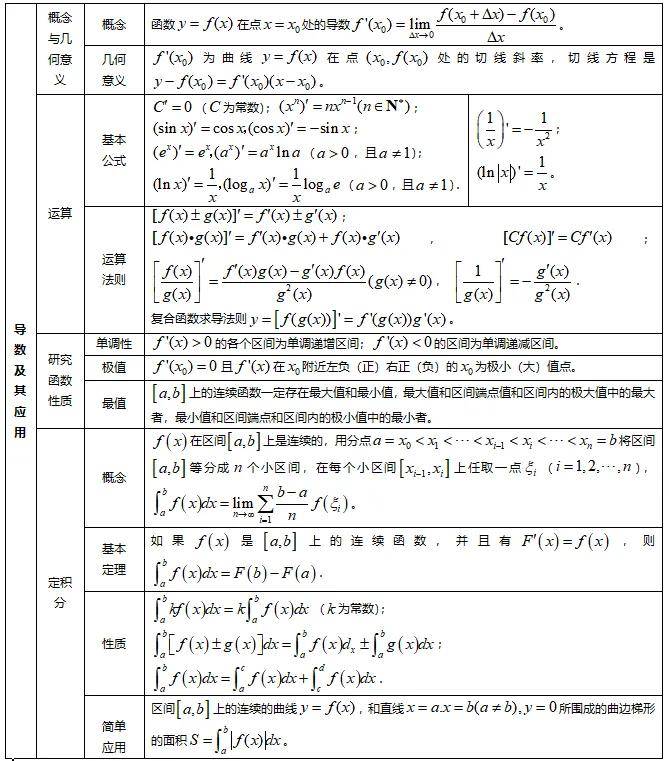 导数及其应用
概念与几何意义
概念
函数 y = f(x) 在点 x = x₀ 处的导数 f'(x₀) = lim_{Δx→0} [f(x₀ + Δx) − f(x₀)] / Δx 。
几何意义
f'(x₀) 为曲线 y = f(x) 在点 (x₀, f(x₀)) 处的切线斜率，切线方程是
y − f(x₀) = f'(x₀)(x − x₀) 。
运算
基本公式
C' = 0 （C 为常数）； (xⁿ)' = nxⁿ⁻¹(n∈N*)；
(sin x)' = cos x, (cos x)' = −sin x；
(eˣ)' = eˣ, (aˣ)' = aˣ ln a （a > 0，且 a ≠ 1）；
(ln x)' = 1/x, (logₐ x)' = 1/x logₐ e （a > 0，且 a ≠ 1）.
(1/x)' = −1/x²；
(ln|x|)' = 1/x 。
运算法则
[f(x) ± g(x)]' = f'(x) ± g'(x)；
[f(x)•g(x)]' = f'(x)•g(x) + f(x)•g'(x) ， [Cf(x)]' = Cf'(x) ；
[f(x)/g(x)]' = [f'(x)g(x) − g'(x)f(x)] / g²(x) (g(x) ≠ 0)， [1/g(x)]' = −g'(x)/g²(x) .
复合函数求导法则 y = [f(g(x))]' = f'(g(x))g'(x) 。
研究函数性质
单调性
f'(x) > 0 的各个区间为单调递增区间； f'(x) < 0 的区间为单调递减区间。
极值
f'(x₀) = 0 且 f'(x) 在 x₀ 附近左负（正）右正（负）的 x₀ 为极小（大）值点。
最值
[a,b] 上的连续函数一定存在最大值和最小值，最大值和区间端点值和区间内的极大值中的最大
者，最小值和区间端点和区间内的极小值中的最小者。
定积分
概念
f(x) 在区间 [a,b] 上是连续的，用分点 a = x₀ < x₁ < ⋯ < xᵢ₋₁ < xᵢ < ⋯ < xₙ = b 将区间
[a,b] 等分成 n 个小区间，在每个小区间 [xᵢ₋₁, xᵢ] 上任取一点 ξᵢ （i = 1,2,⋯,n），
∫ₐᵇ f(x)dx = lim_{n→∞} ∑_{i=1}^{n} (b−a)/n f(ξᵢ) 。
基本定理
如果 f(x) 是 [a,b] 上的连续函数，并且有 F'(x) = f(x)，则
∫ₐᵇ f(x)dx = F(b) − F(a) .
性质
∫ₐᵇ kf(x)dx = k∫ₐᵇ f(x)dx （k 为常数）；
∫ₐᵇ [f(x) ± g(x)]dx = ∫ₐᵇ f(x)dₓ ± ∫ₐᵇ g(x)dx；
∫ₐᵇ f(x)dx = ∫ₐᶜ f(x)dx + ∫_c^d f(x)dx .
简单应用
区间 [a,b] 上的连续的曲线 y = f(x)，和直线 x = a.x = b(a ≠ b), y = 0 所围成的曲边梯形
的面积 S = ∫ₐᵇ |f(x)|dx 。